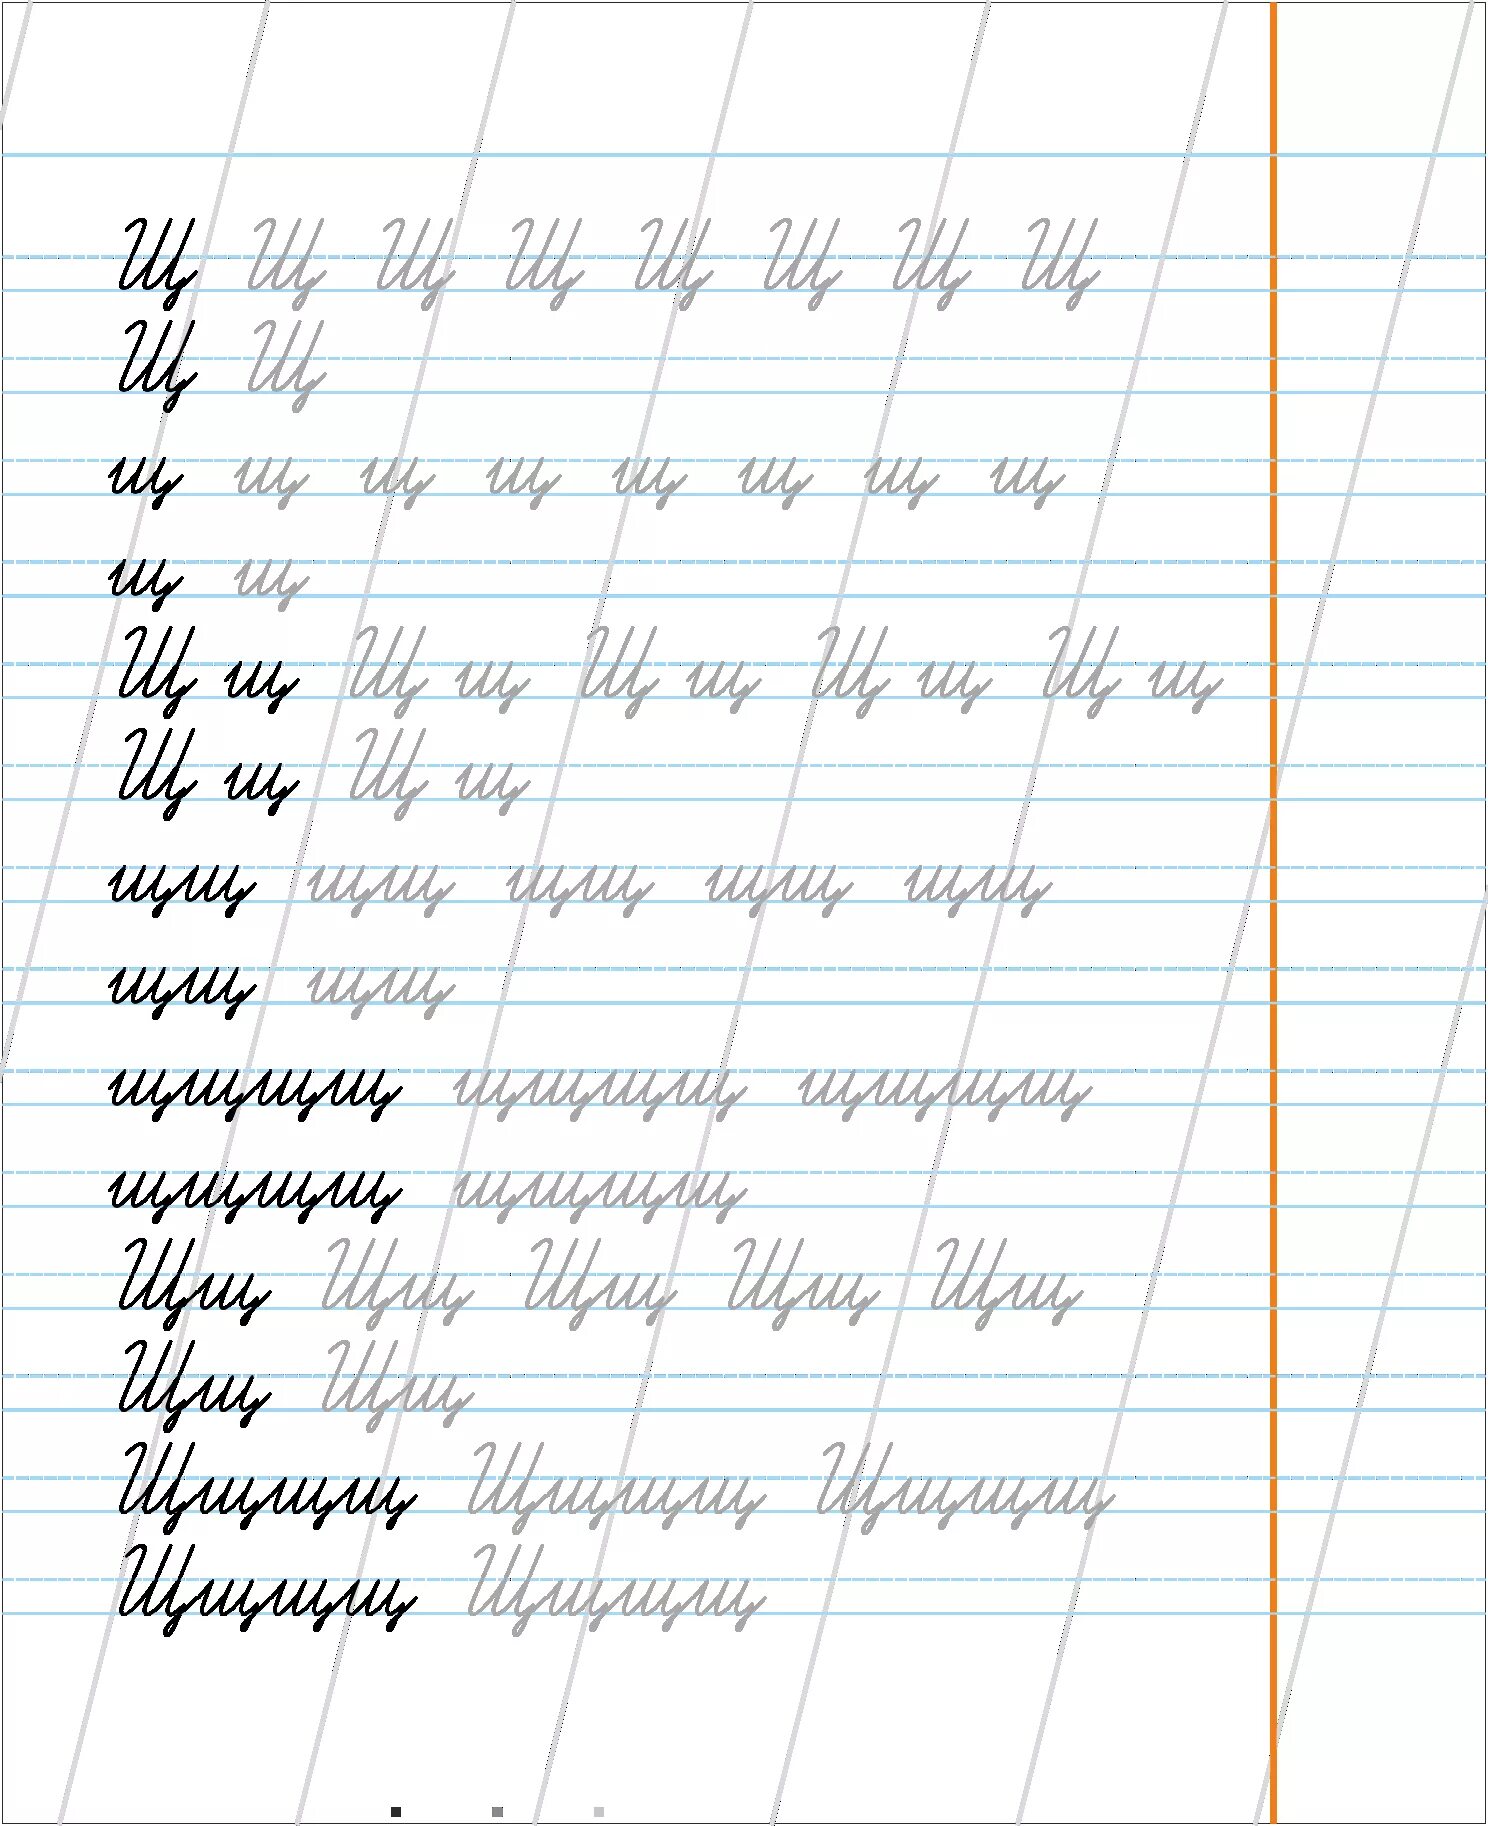 Щ Щ Щ Щ Щ Щ Щ Щ
Щ Щ
щ щ щ щ щ щ щ щ
щ щ
Щ щ Щ щ Щ щ Щ щ Щ щ
Щ щ Щ щ
щщ щщ щщ щщ щщ
щщ щщ
щщщщ щщщщ щщщщ
щщщщ щщщщ
Щщ Щщ Щщ Щщ Щщ
Щщ Щщ
Щщщщ Щщщщ Щщщщ
Щщщщ Щщщщ